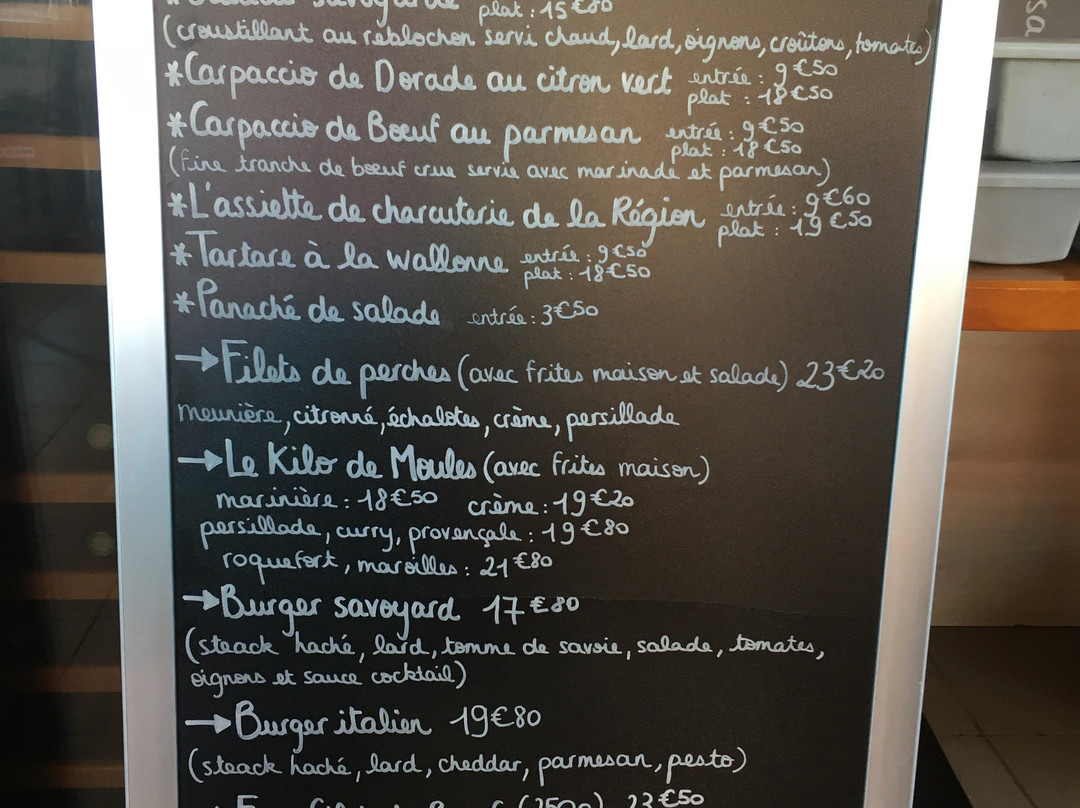 savoyarde plat : 15€80
(croustillant au reblochon servi chaud, lard, oignons, croûtons, tomates)
*Carpaccio de Dorade au citron vert entrée : 9€50
plat : 18€50
*Carpaccio de Bœuf au parmesan entrée : 9€50
plat : 18€50
(fine tranche de bœuf crue servie avec marinade et parmesan)
*L'assiette de charcuterie de la Région entrée : 9€60
plat : 19€50
*Tartare à la wallonne entrée : 9€50
plat : 18€50
*Panaché de salade entrée : 3€50
→Filets de perches (avec frites maison et salade) 23€20
meunière, citronné, échalotes, crème, persillade
→Le Kilo de Moules (avec frites maison)
marinière : 18€50 crème : 19€20
persillade, curry, provençale : 19€80
roquefort, maroilles : 21€80
→Burger savoyard 17€80
(steack haché, lard, tomme de savoie, salade, tomates,
oignons et sauce cocktail)
→Burger italien 19€80
(steack haché, lard, cheddar, parmesan, pesto)
23€50